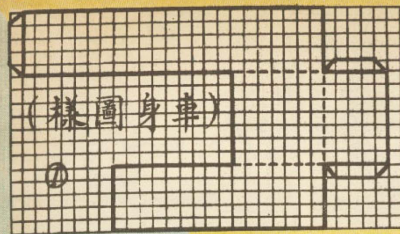 (樣圖身車)
①